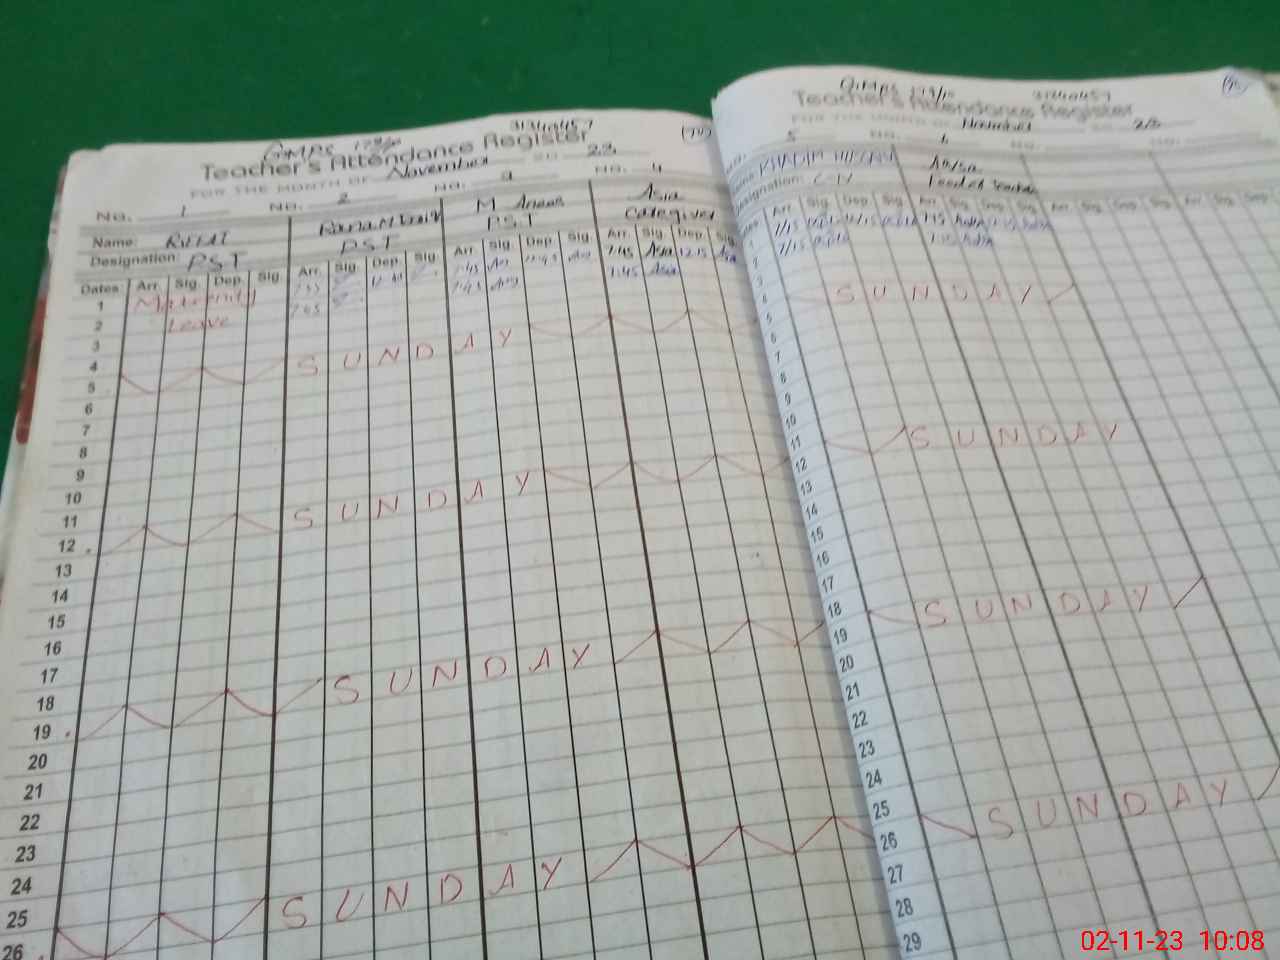 31340457
GMPS 179/10 (74)
Teacher's Attendance Register
FOR THE MONTH OF November 20 23
No. 1 No. 2 No. No. 4
Name: RIFFAT M Anwar Asia
Designation: PST PST PST Categiver
Dates Arr. Sig. Dep. Sig. Arr. Sig. Dep. Sig. Arr. Sig. Dep. Sig. Arr. Sig. Dep. Sig.
1 Maternity 7:45 Asia 12:15 Asia
2 Leave 7:45 Asia
3
4
5 SUNDAY
6
7
8
9
10
11
12 SUNDAY
13
14
15
16
17
18
19 SUNDAY
20
21
22
23
24
25
26 SUNDAY
GMPS 179/10 31340457 (75)
Teacher's Attendance Register
FOR THE MONTH OF November 20 23
No. 5 No. 6 No. No.
Name: KHADIM HUSSAIN
Designation:
Dates Arr. Sig. Dep. Sig. Arr. Sig. Dep. Sig. Arr. Sig. Dep. Sig. Arr. Sig. Dep.
1 7/15
2 7/15
3
4
5 SUNDAY
6
7
8
9
10
11
12 SUNDAY
13
14
15
16
17
18
19 SUNDAY
20
21
22
23
24
25
26 SUNDAY
27
28
29
02-11-23 10:08